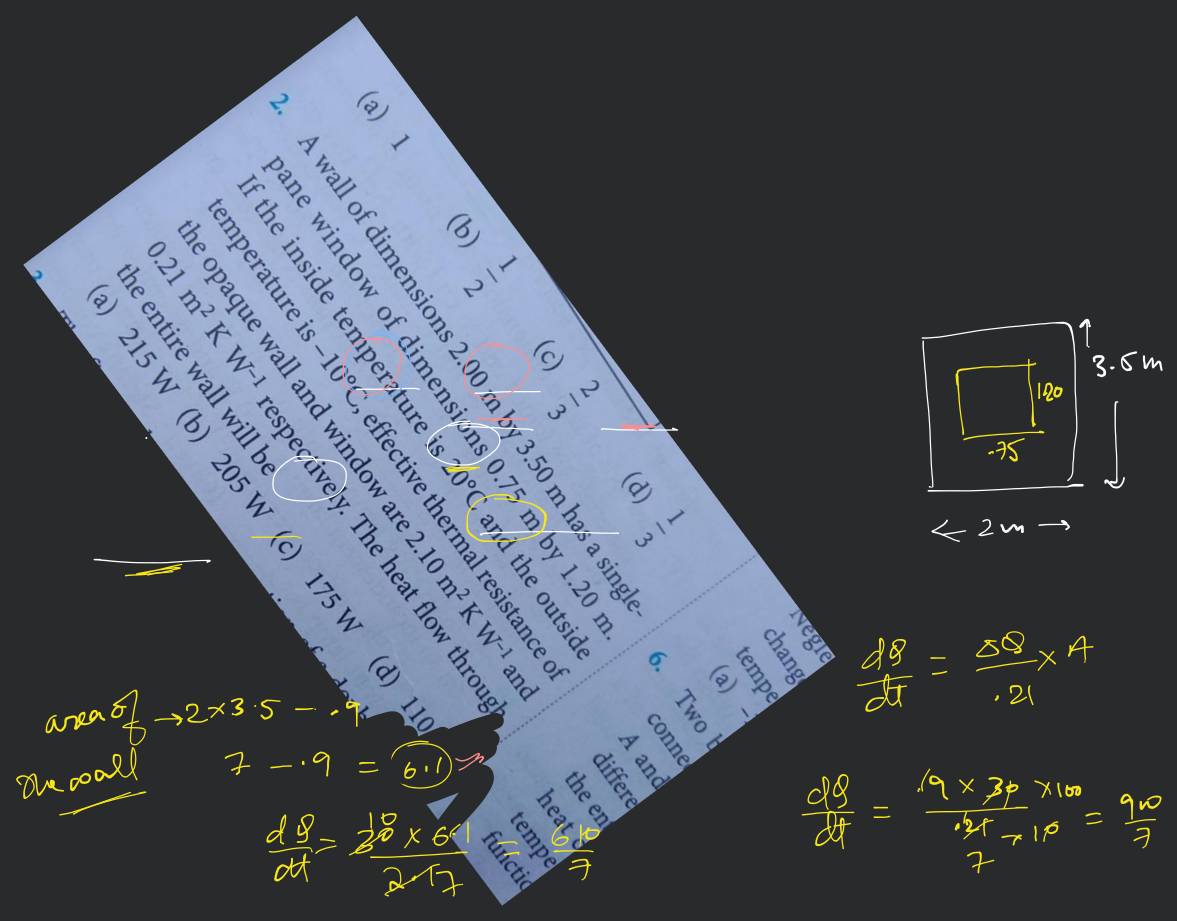 (a) 1 (b) 1/2 (c) 2/3 (d) 1/3
2. A wall of dimensions 2.00 m by 3.50 m has a single-
pane window of dimensions 0.75 m by 1.20 m.
If the inside temperature is 20°C and the outside
temperature is −10°C, effective thermal resistance of
the opaque wall and window are 2.10 m² K W−1 and
0.21 m² K W−1 respectively. The heat flow through
the entire wall will be
(a) 215 W (b) 205 W (c) 175 W (d) 110
6. Two b
conne
A and
differe
the en
heat
tempe
functio
Negle
chang
tempe
(a)
3.5 m
1.20
.75
← 2m →
area of → 2×3.5 − .9
the wall 7 − .9 = 6.1
dQ/dt = 30 × 6.1 / 2.1 7 = 610/7
dQ/dt = Δθ/.21 × A
dQ/dt = .9 × 30 × 100 / .21 × 10 7 = 900/7